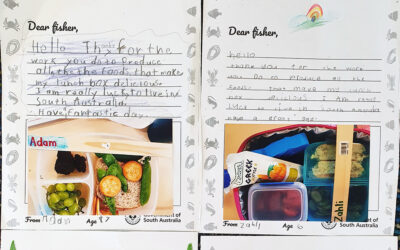 Dear fisher,
Hello Thx for the
work you do to produce
all the the foods that make
my lunch box delicious.
I am really luck to live in
South Australia.
Have fantastic day.
Adam
From Adam Age 8
Government of
South Australia
Dear fisher,
hello
thank you for the work
you do to all the
food that make my lunch
box delicious I am
luck to live in South Australia
have a great day
GREEK
Zahli
From Zahli Age 6
Government of
South Australia